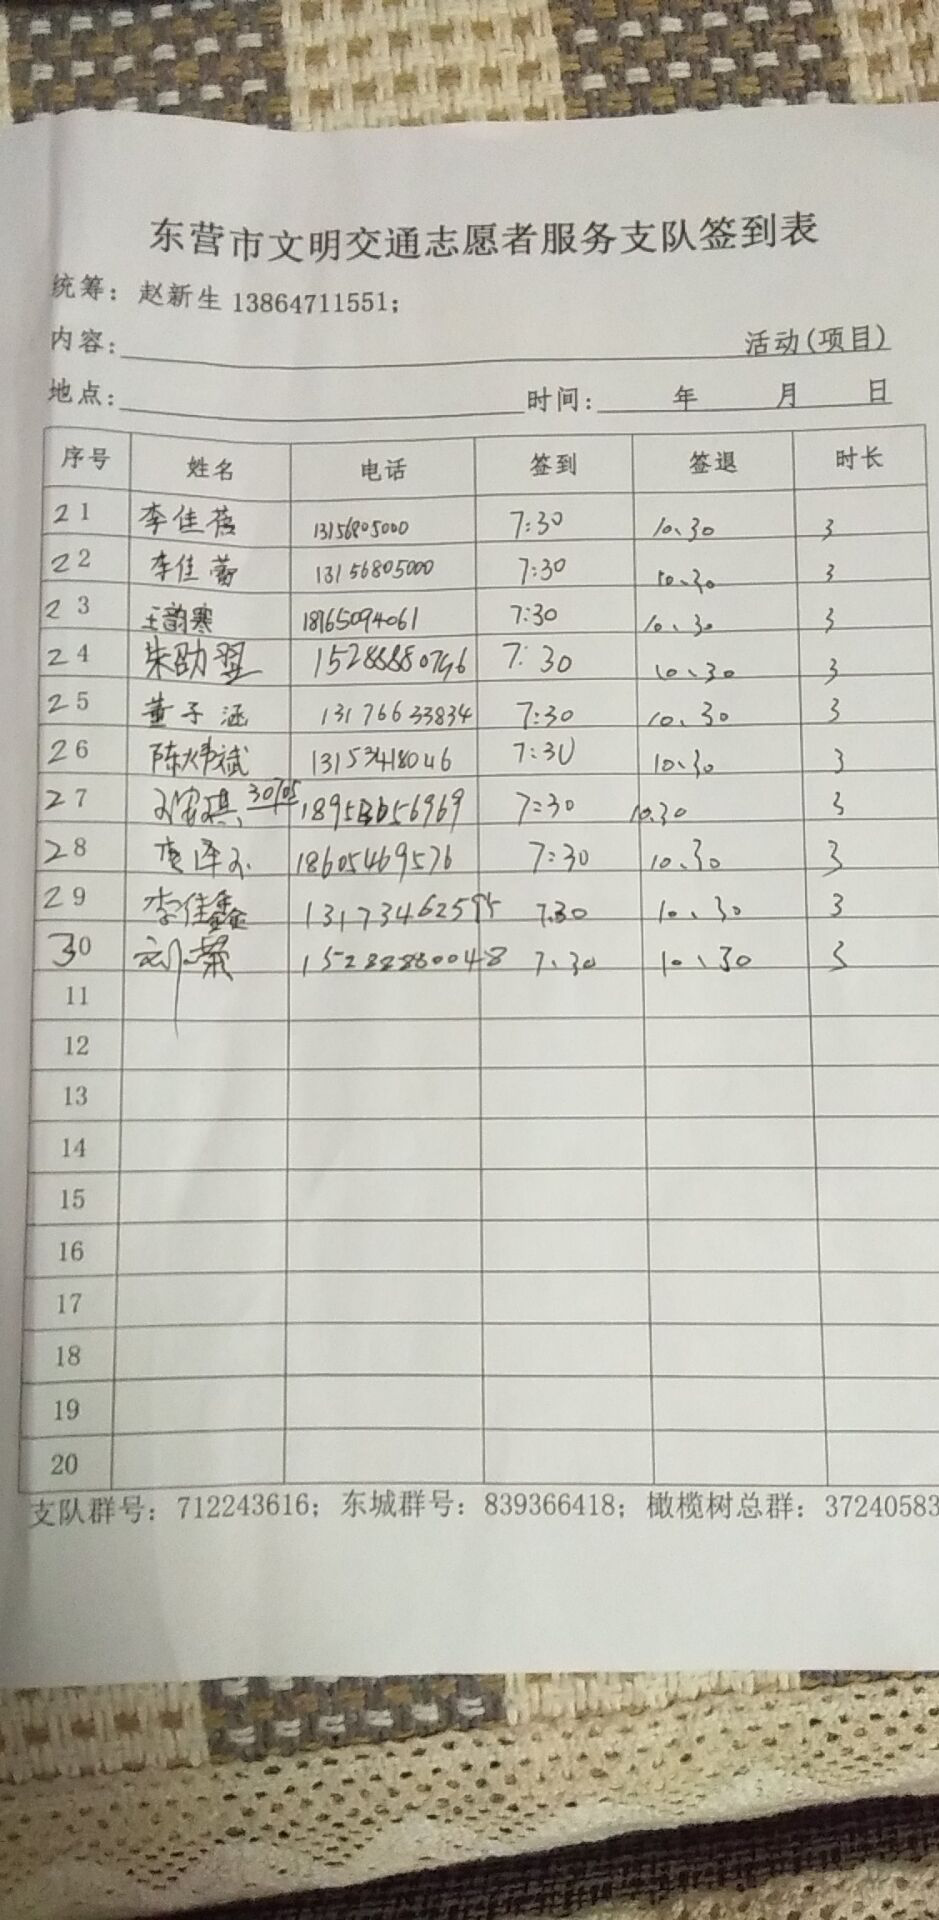 东营市文明交通志愿者服务支队签到表
统筹：赵新生 13864711551；
内容： 活动(项目)
地点： 时间： 年 月 日
序号 姓名 电话 签到 签退 时长
21 李佳蓓 13156805000 7:30 10、30 3
22 李佳蕾 13156805000 7:30 10、30 3
23 王韵寒 18765094061 7:30 10、30 3
24 朱劭翌 7:30 10、30 3
25 董子涵 13176633834 7:30 10、30 3
26 陈炜斌 13153418046 7:30 10、30 3
27 7:30 10.30 3
28 18605469576 7:30 10、30 3
29 李佳鑫 7.30 10、30 3
30 15288880048 7、30 10、30 3
11
12
13
14
15
16
17
18
19
20
支队群号：712243616；东城群号：839366418；橄榄树总群：37240583